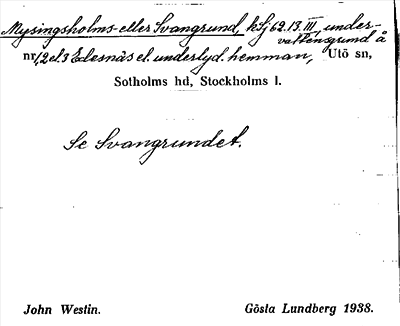 Mysingsholms- eller Svangrund, kSj 62.13.III, under-
vattensgrund å
nr 1, 2 el. 3 Edesnäs el. underlyd. hemman, Utö sn,
Sotholms hd, Stockholms l.
Se Svangrundet.
John Westin. Gösta Lundberg 1938.